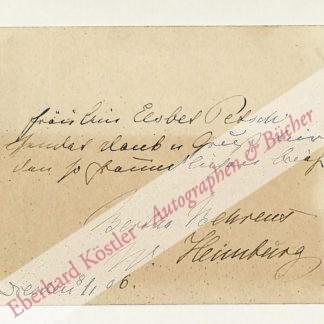 Fräulein Elsbet Petsch
sendet Dank u Gruß
den so freundlichen
Bertha Behrens
W. Heimburg
Dresden 8/1 06.
Eberhard Köstler - Autographen & Bücher